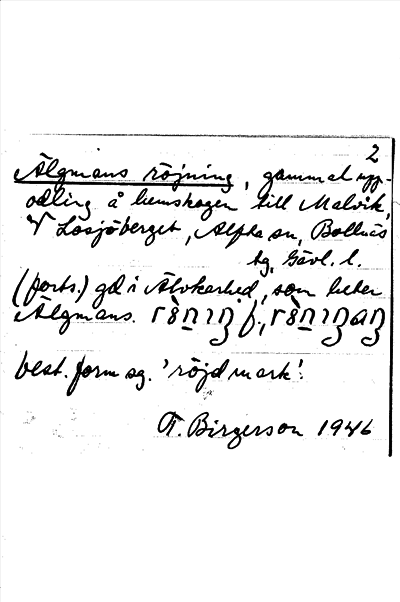 2
Älgmans röjning, gammal upp-
odling å hemskogen till Malvik,
V Lösjöberget, Alfta sn, Bollnäs
tg, Gävl. l.
(forts.) gd i Älvkarhed, som heter
Älgmans.
best. form sg. 'röjd mark'.
T. Birgerson 1946